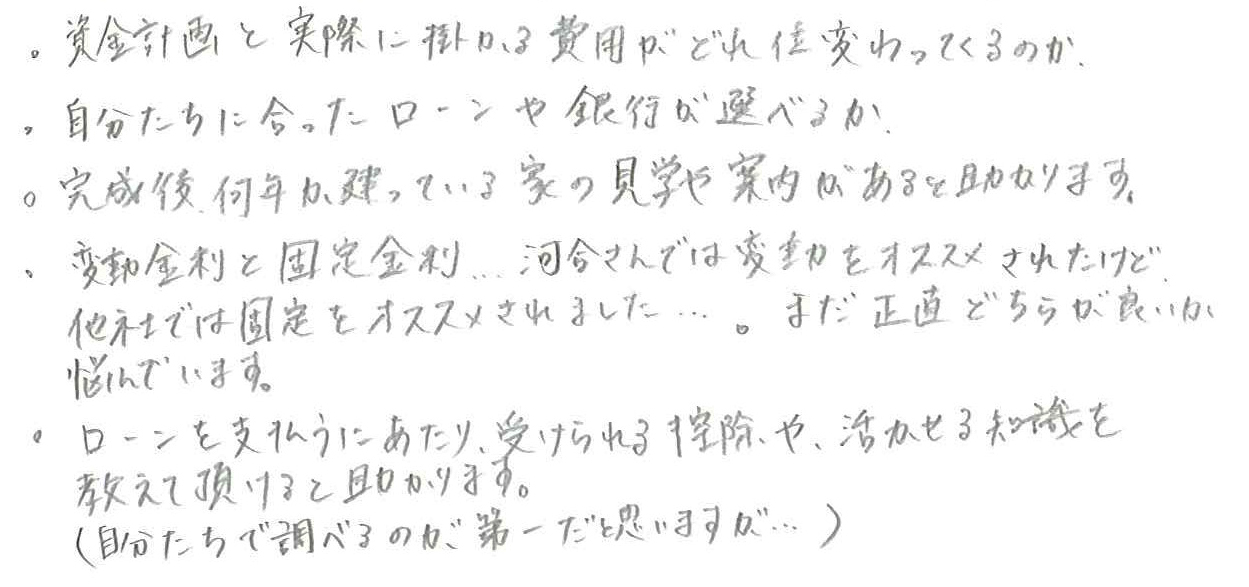 。資金計画と実際に掛かる費用がどれ位変わってくるのか.
。自分たちに合ったローンや銀行が選べるか.
。完成後、何年か建っている家の見学や案内があると助かります。
、変動金利と固定金利…河合さんでは変動をオススメされたけど、
他社では固定をオススメされました…。まだ正直どちらが良いか
悩んでいます。
。ローンを支払うにあたり、受けられる控除や、活かせる知識を
教えて頂けると助かります。
(自分たちで調べるのが、第一だと思いますが…)